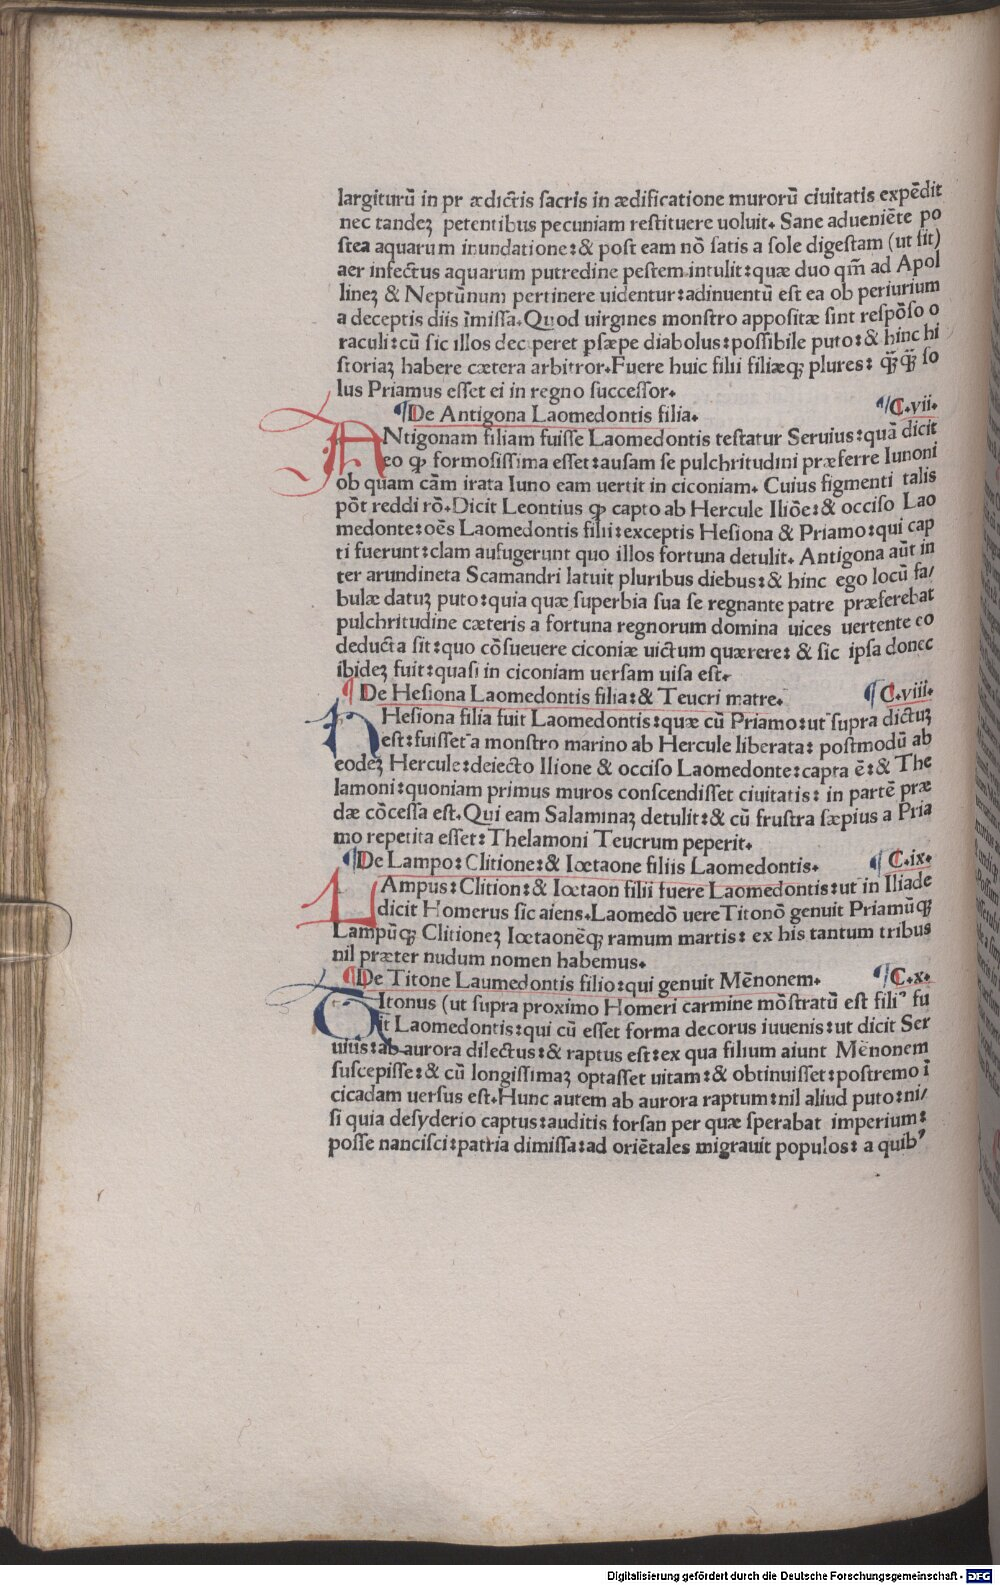 largiturū in pr ædictis sacris in ædificatione murorū ciuitatis expēdit
nec tandeꝫ petentibus pecuniam restituere uoluit. Sane adueniēte po
stea aquarum inundatione: & post eam nō satis a sole digestam (ut sit)
aer infectus aquarum putredine pestem intulit: quæ duo qm̄ ad Apol
lineꝫ & Neptūnum pertinere uidentur: adinuentū est ea ob periurium
a deceptis diis īmissa. Quod uirgines monstro appositæ sint respōso o
raculi: cū sic illos dec peret ꝑsæpe diabolus: possibile puto: & hinc hi
storiaꝫ habere cætera arbitror. Fuere huic filii filiæqꝫ plures: qq̄ꝫ so
lus Priamus esset ei in regno successor.
¶De Antigona Laomedontis filia. ¶C.vii.
ANtigonam filiam fuisse Laomedontis testatur Seruius: quā dicit
eo ꝙ formosissima esset: ausam se pulchritudini præferre Iunoni
ob quam cām irata Iuno eam uertit in ciconiam. Cuius figmenti talis
pōt reddi rō. Dicit Leontius ꝙ capto ab Hercule Iliōe: & occiso Lao
medonte: oēs Laomedontis filii: exceptis Hesiona & Priamo: qui cap
ti fuerunt: clam aufugerunt quo illos fortuna detulit. Antigona aūt in
ter arundineta Scamandri latuit pluribus diebus: & hinc ego locū fa/
bulæ datuꝫ puto: quia quæ superbia sua se regnante patre præferebat
pulchritudine cæteris a fortuna regnorum domina uices uertente eo
deducta sit: quo cōsueuere ciconiæ uictum quærere: & sic ipsa donec
ibideꝫ fuit: quasi in ciconiam uersam uisa est.
¶De Hesiona Laomedontis filia: & Teucri matre. ¶C.viii.
HHesiona filia fuit Laomedontis: quæ cū Priamo: ut supra dictuꝫ
est: fuisset a monstro marino ab Hercule liberata: postmodū ab
eodeꝫ Hercule: deiecto Ilione & occiso Laomedonte: capta ē: & The
lamoni: quoniam primus muros conscendisset ciuitatis: in partē præ
dæ cōcessa est. Qui eam Salaminaꝫ detulit: & cū frustra sæpius a Pria
mo repetita esset: Thelamoni Teucrum peperit.
¶De Lampo: Clitione: & Ioctaone filiis Laomedontis. ¶C.ix.
LAmpus: Clition: & Ioctaon filii fuere Laomedontis: ut in Iliade
dicit Homerus sic aiens. Laomedō uere Titonō genuit Priamūqꝫ
Lampūqꝫ Clitioneꝫ Ioctaonēqꝫ ramum martis: ex his tantum tribus
nil præter nudum nomen habemus.
¶De Titone Laumedontis filio: qui genuit Mēnonem. ¶C.x.
TItonus (ut supra proximo Homeri carmine mōstratū est filiꝰ fu
it Laomedontis: qui cū esset forma decorus iuuenis: ut dicit Ser
uius: ab aurora dilectus: & raptus est: ex qua filium aiunt Mēnonem
suscepisse: & cū longissimaꝫ optasset uitam: & obtinuisset: postremo ī
cicadam uersus est. Hunc autem ab aurora raptum: nil aliud puto: ni/
si quia desyderio captus: auditis forsan per quæ sperabat imperium:
posse nancisci: patria dimissa: ad oriētales migrauit populos: a quibꝰ
Digitalisierung gefördert durch die Deutsche Forschungsgemeinschaft - DFG